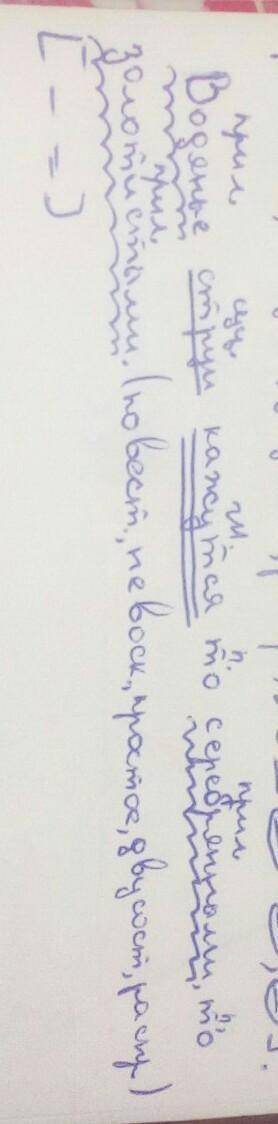 прил сущ. гл. п. прил п.
Водяные струи кажутся то серебряными, то
прил
золотистыми. (повест., невоск., простое, двусост, распр)
[ – = ]